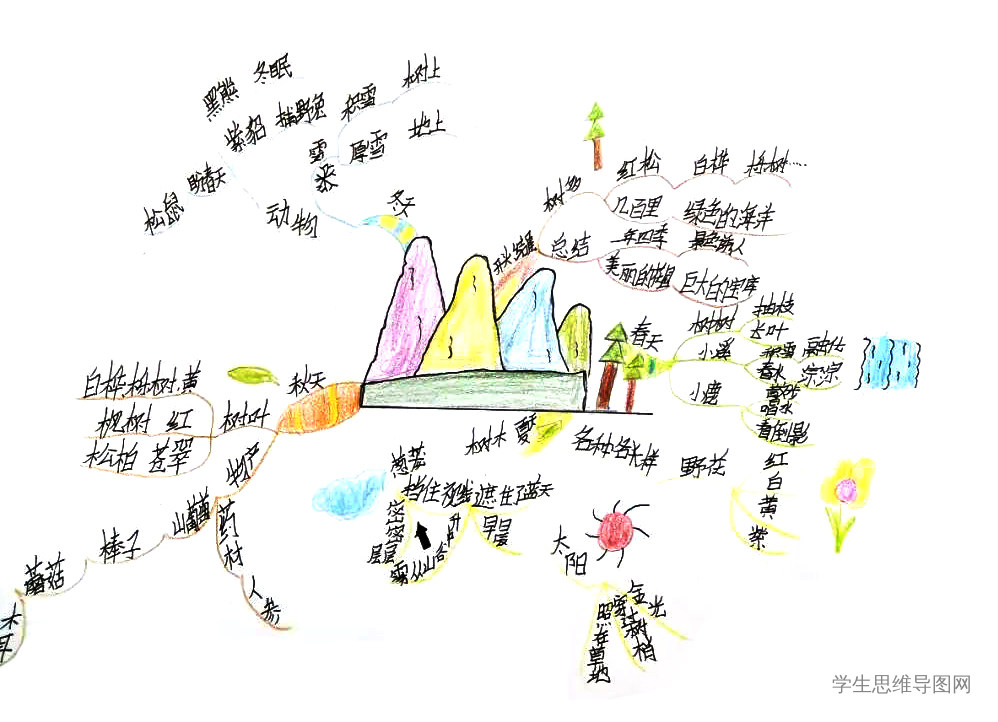 黑熊 冬眠
紫貂 捕野兔
松鼠 盼春天
动物
雪
积雪 树上
厚雪 地上
冬天
树多
红松 白桦 栎树……
几百里 绿色的海洋
总结
一年四季 景色诱人
美丽的花园 巨大的宝库
春天
树木
抽枝
长叶
小溪
积雪 融化
春水 淙淙
小鹿
喝水
看倒影
秋天
树叶
白桦 栎树 黄
枫树 红
松柏 苍翠
物产
山葡萄
榛子
蘑菇
木耳
药材
人参
夏天
树木
葱茏
密密层层
挡住视线 遮住了蓝天
早晨
雾从山谷升
各种各样 野花
红
白
黄
紫
太阳
金光
穿过树梢
照在草地
学生思维导图网